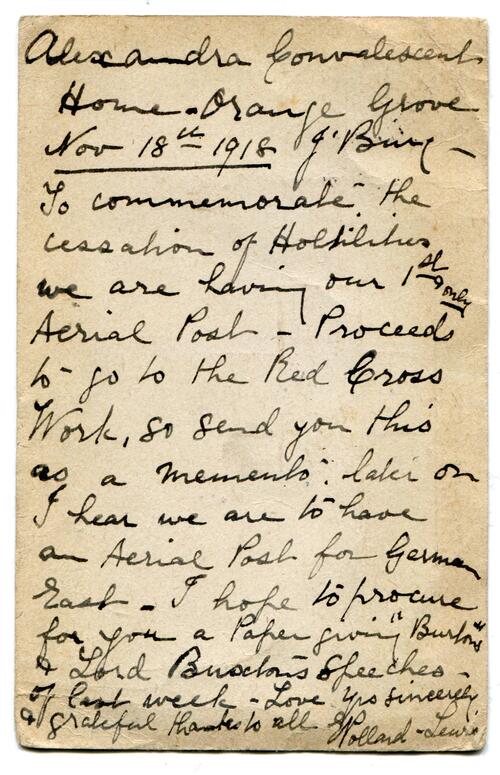 Alexandra Convalescent
Home - Orange Grove
Nov 18th 1918 J'Burg -
To commemorate the
cessation of Hostilities
we are having our 1st & only
Aerial Post - Proceeds
to go to the Red Cross
Work, so send you this
as a memento. later on
I hear we are to have
an Aerial Post for German
East - I hope to procure
for you a Paper giving "Burton's"
& Lord Buxton's Speeches -
of last week - Love Yrs sincerely
& grateful thanks to all Pollard - Lewis